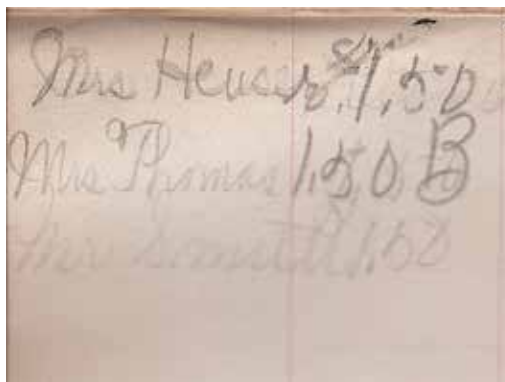 Mrs Heuser 1.50
Mrs Thomas 1.50 B
Mrs 1.50